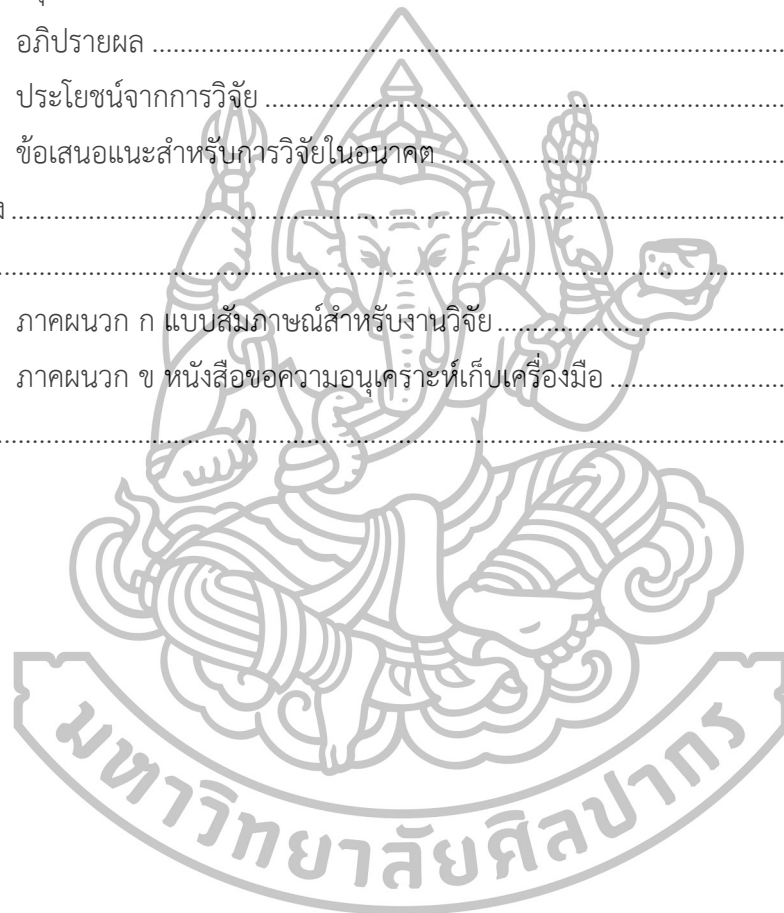 อภิปรายผล ................................................................................
ประโยชน์จากการวิจัย ................................................................................
ข้อเสนอแนะสำหรับการวิจัยในอนาคต ................................................................................
ภาคผนวก ก แบบสัมภาษณ์สำหรับงานวิจัย ................................................................................
ภาคผนวก ข หนังสือขอความอนุเคราะห์เก็บเครื่องมือ ................................................................................
มหาวิทยาลัยศิลปากร